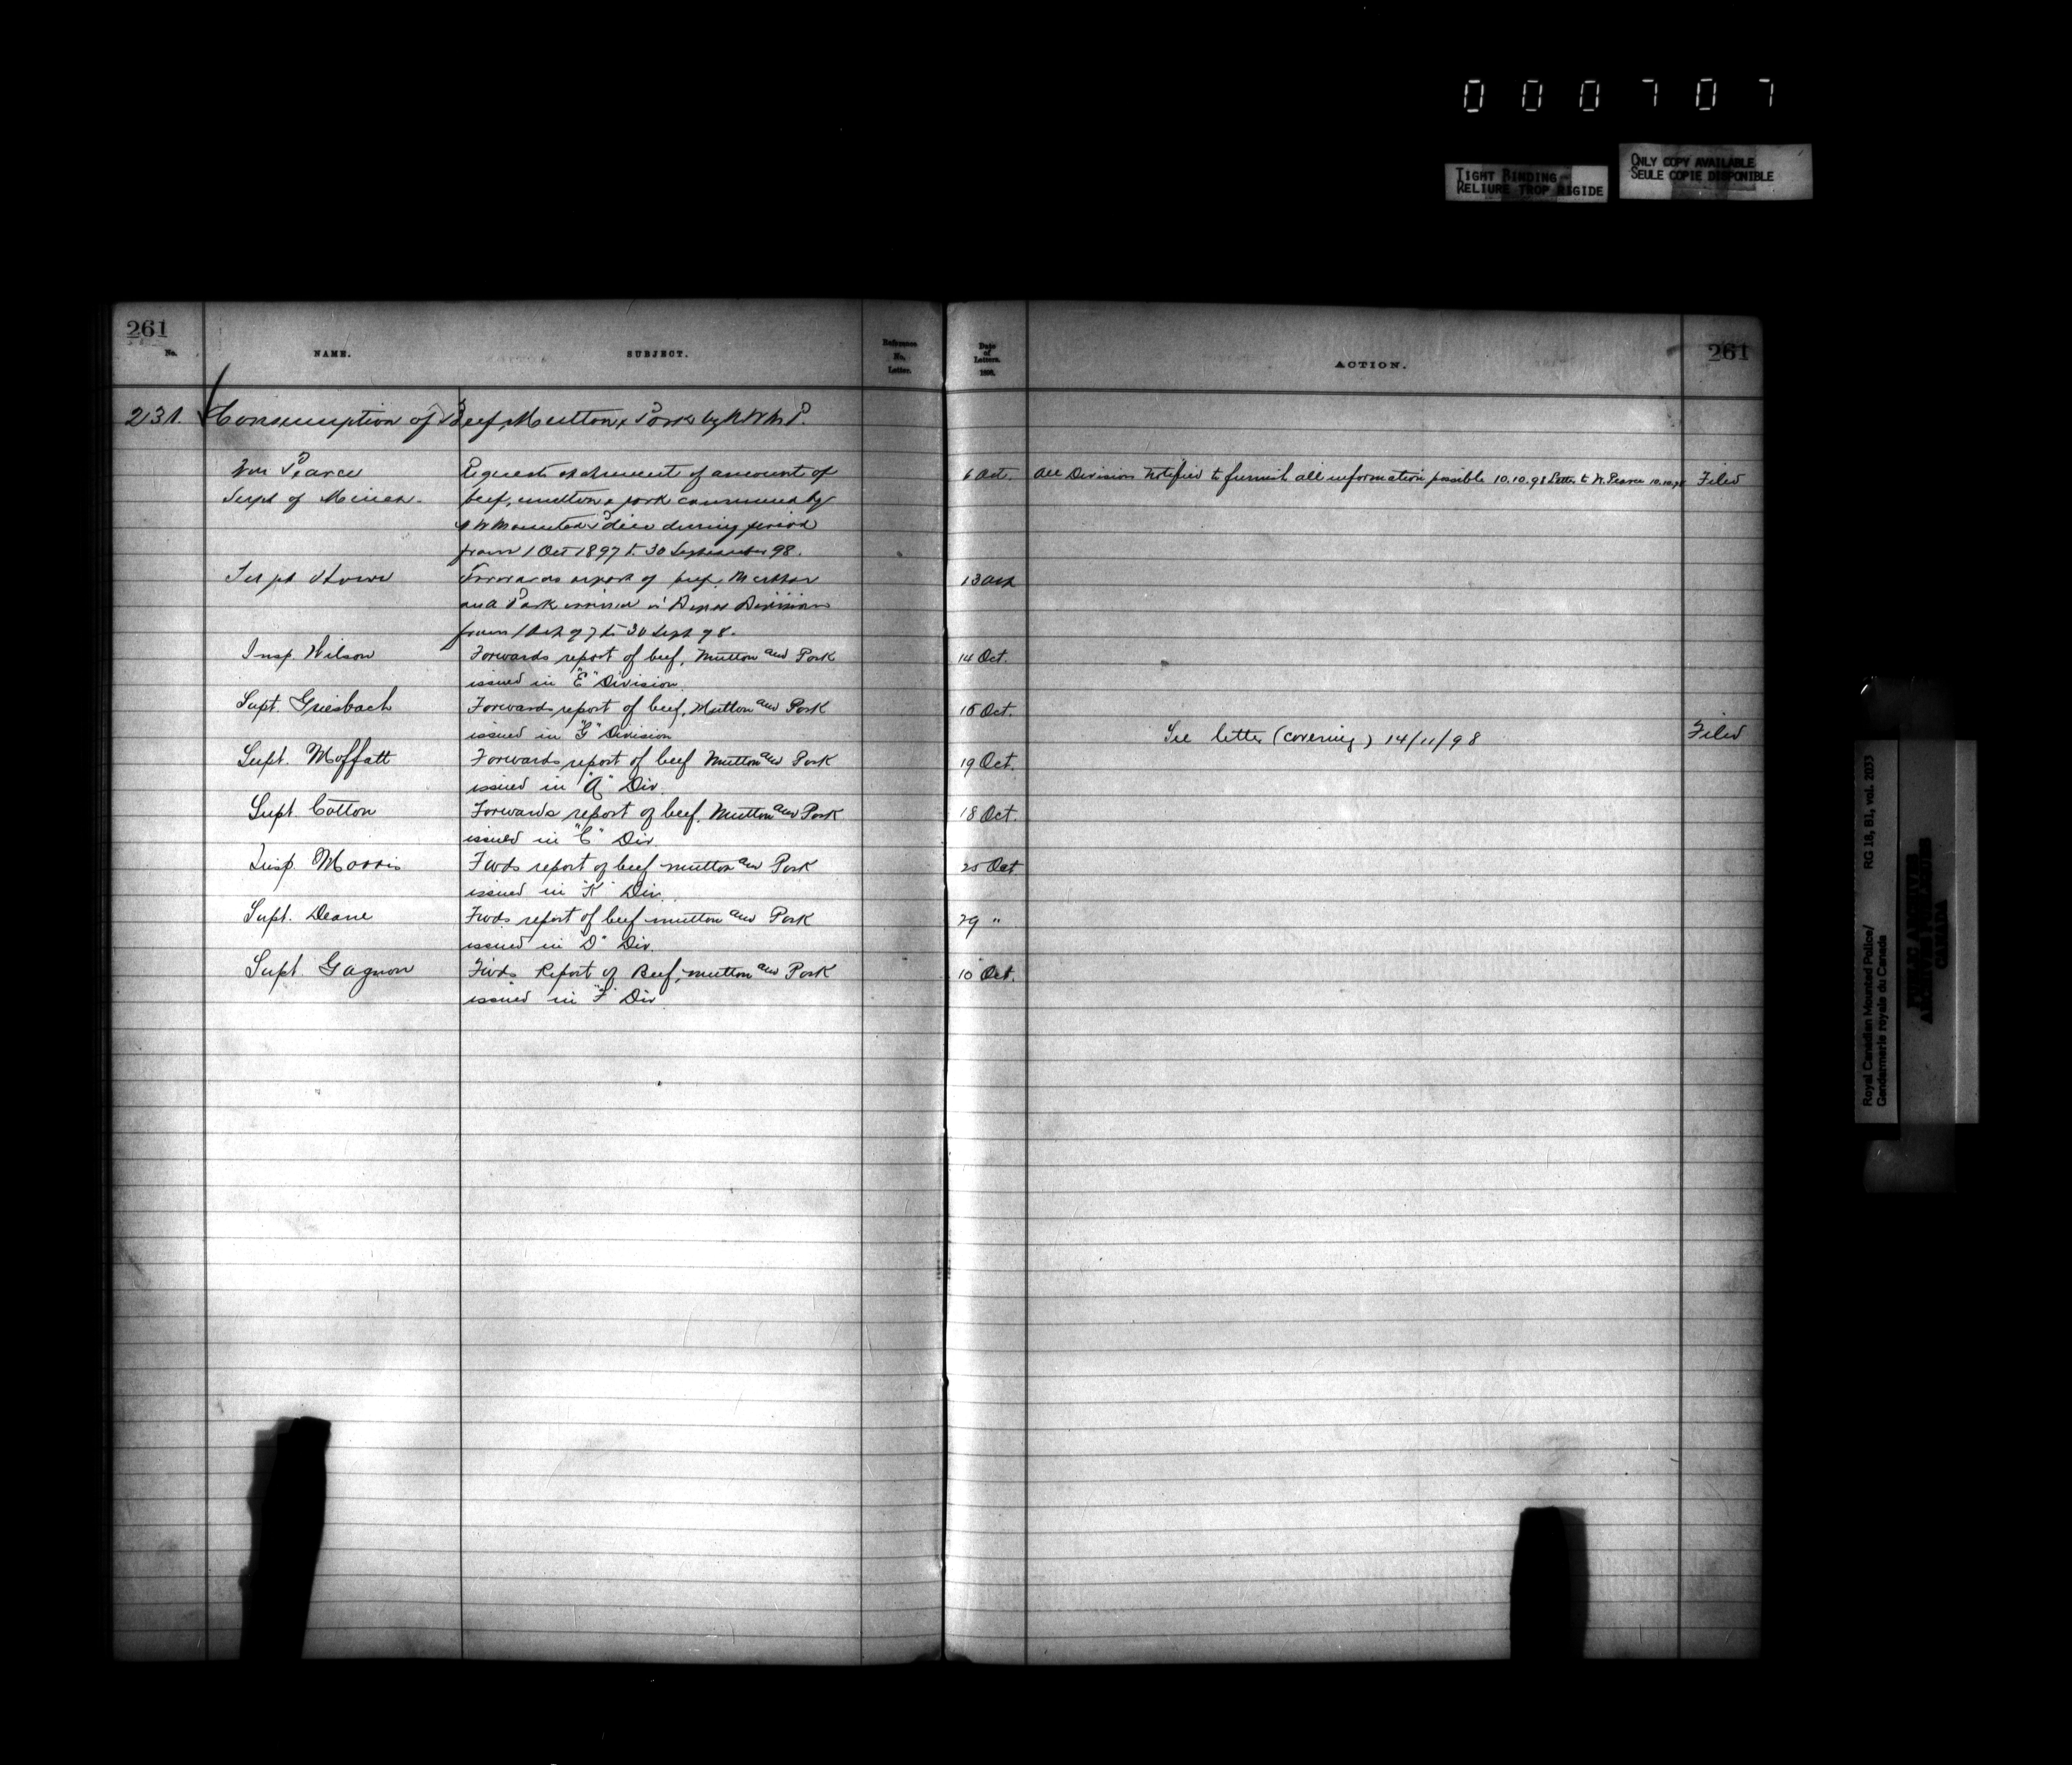 000707
TIGHT BINDING
RELIURE TROP RIGIDE
ONLY COPY AVAILABLE
SEULE COPIE DISPONIBLE
261
No.
NAME.
SUBJECT.
Reference
No.
Letter.
Date
of
Letters.
1898.
ACTION.
261
231. Consumption of Beef, Mutton & Pork by N W M P.
Wm Pearce
Supt of Mines.
Requests statement of amount of
beef, mutton & pork consumed by
N W Mounted Police during period
from 1 Oct 1897 to 30 September 98.
6 Oct.
All Division Notified to furnish all information possible 10.10.98 Letter to W. Pearce 10.10.98
Filed
Supt Howe
Forwards report of beef, Mutton
and Pork issued in Depot Division
from 1 Oct 97 to 30 Sept 98.
13 Oct
Insp Wilson
Forwards report of beef, Mutton and Pork
issued in "E" Division.
14 Oct.
Supt. Griesbach
Forwards report of beef, Mutton and Pork
issued in "G" Division
15 Oct.
See letter (covering) 14/11/98
Filed
Supt. Moffatt
Forwards report of beef Mutton and Pork
issued in "A" Div.
19 Oct.
Supt. Cotton
Forwards report of beef, Mutton and Pork
issued in "C" Div
18 Oct.
Insp. Morris
Fwds report of beef mutton and Pork
issued in "K" Div.
25 Oct
Supt. Deane
Fwds report of beef mutton and Pork
issued in "D" Div.
29 "
Supt Gagnon
Fwds Report of Beef, mutton and Pork
issued in "F" Div
10 Oct.
Royal Canadian Mounted Police/
Gendarmerie royale du Canada
RG 18, B1, vol. 2033
PUBLIC ARCHIVES
ARCHIVES PUBLIQUES
CANADA